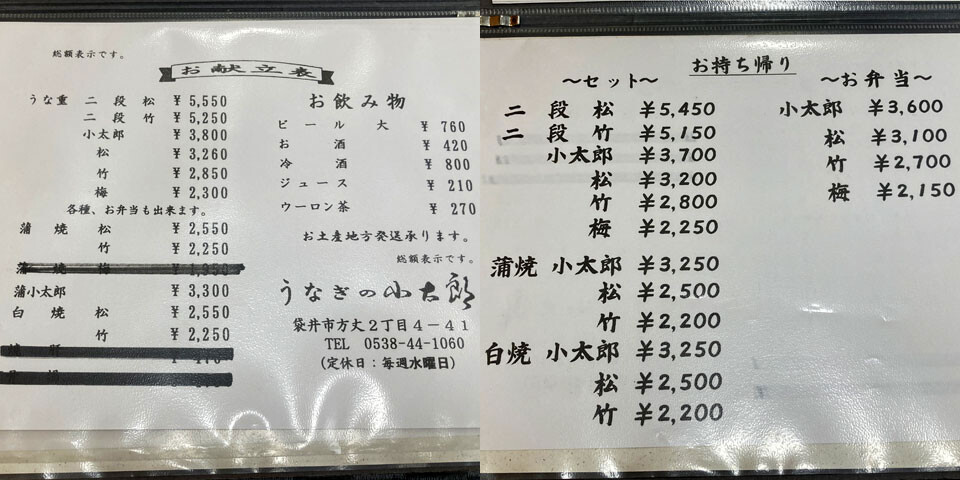 総額表示です。
お献立表
うな重 二段松 ¥5,550
二段竹 ¥5,250
小太郎 ¥3,800
松 ¥3,260
竹 ¥2,850
梅 ¥2,300
各種、お弁当も出来ます。
蒲焼 松 ¥2,550
竹 ¥2,250
蒲焼梅 ¥1,950
蒲小太郎 ¥3,300
白焼 松 ¥2,550
竹 ¥2,250
お飲み物
ビール 大 ¥760
お酒 ¥420
冷酒 ¥800
ジュース ¥210
ウーロン茶 ¥270
お土産地方発送承ります。
総額表示です。
うなぎの小太郎
袋井市方丈2丁目4-41
TEL 0538-44-1060
(定休日:毎週水曜日)
お持ち帰り
~セット~
二段松 ¥5,450
二段竹 ¥5,150
小太郎 ¥3,700
松 ¥3,200
竹 ¥2,800
梅 ¥2,250
蒲焼 小太郎 ¥3,250
松 ¥2,500
竹 ¥2,200
白焼 小太郎 ¥3,250
松 ¥2,500
竹 ¥2,200
~お弁当~
小太郎 ¥3,600
松 ¥3,100
竹 ¥2,700
梅 ¥2,150